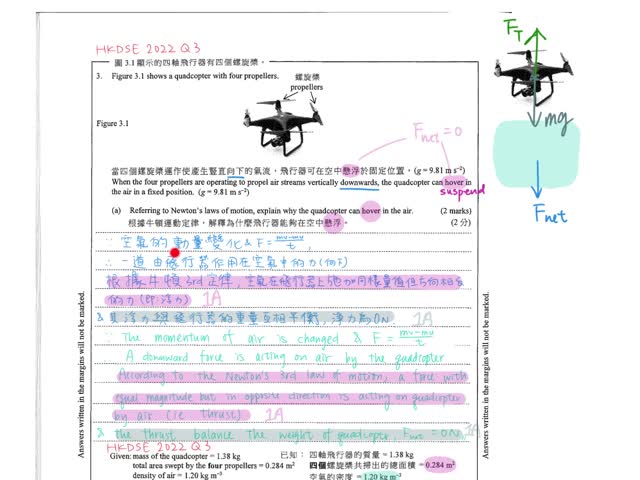 HKDSE 2022 Q3
圖 3.1 顯示的四軸飛行器有四個螺旋槳。
3. Figure 3.1 shows a quadcopter with four propellers.
螺旋槳
propellers
Figure 3.1
F_T
mg
F_net
F_net = 0
當四個螺旋槳運作使產生豎直向下的氣流,飛行器可在空中懸浮於固定位置。(g = 9.81 m s⁻²)
When the four propellers are operating to propel air streams vertically downwards, the quadcopter can hover in
the air in a fixed position. (g = 9.81 m s⁻²)
suspend
(a) Referring to Newton's laws of motion, explain why the quadcopter can hover in the air. (2 marks)
根據牛頓運動定律,解釋為什麼飛行器能夠在空中懸浮。 (2 分)
∵ 空氣的動量變化 & F = (mv-mu)/t,
∴ 一道由飛行器作用在空氣中的力(向下)
根據牛頓3rd定律,空氣在飛行器上施加同樣量值但方向相反
的力(即浮力) 1A
& 其浮力與飛行器的重量互相平衡,淨力為0N 1A
∵ The momentum of air is changed & F = (mv-mu)/t
A downward force is acting on air by the quadcopter
According to the Newton's 3rd law of motion, a force with
equal magnitude but in opposite direction is acting on quadcopter
by air (ie thrust) 1A
& the thrust balance the weight of quadcopter, F_net = 0N 1A
HKDSE 2022 Q3
Given: mass of the quadcopter = 1.38 kg
total area swept by the four propellers = 0.284 m²
density of air = 1.20 kg m⁻³
已知: 四軸飛行器的質量 = 1.38 kg
四個螺旋槳共掃出的總面積 = 0.284 m²
空氣的密度 = 1.20 kg m⁻³
Answers written in the margins will not be marked.
Answers written in the margins will not be marked.